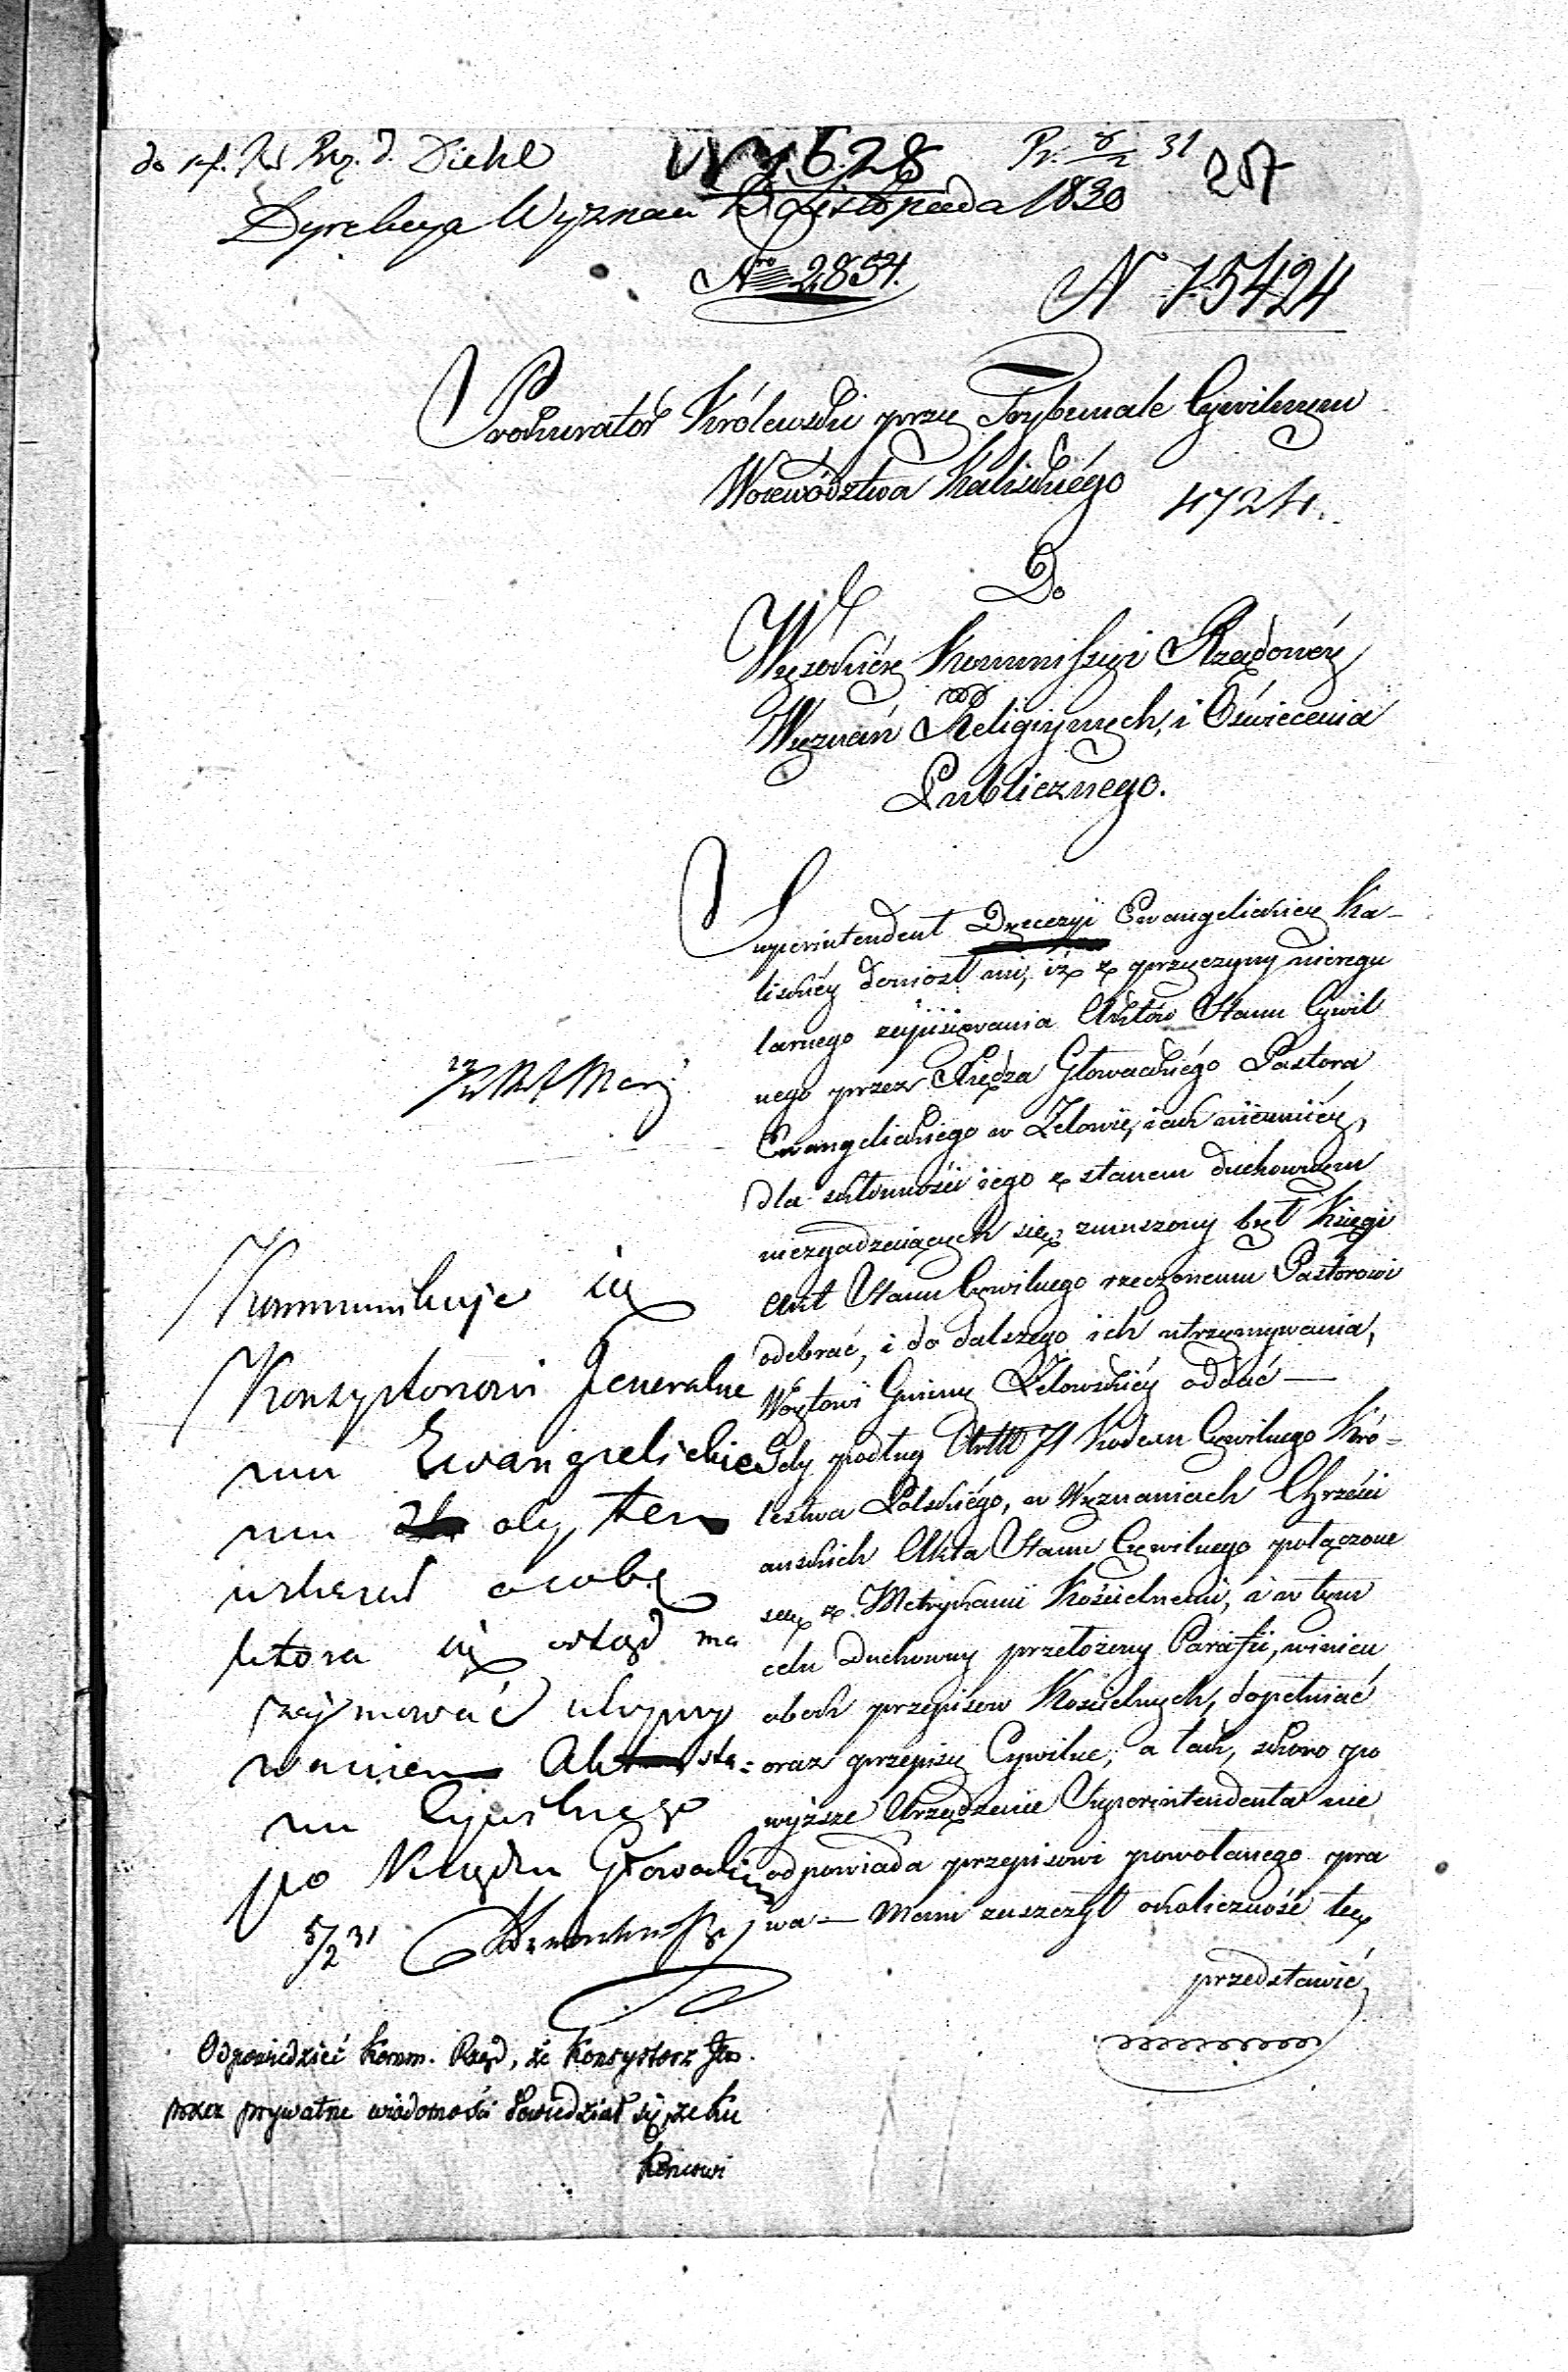 do ref. Rad. Diehl
628
Pr. 8/2 31
217
Dyrekcya Wyznań Listopada 1830
Nro 2854.
N 15424
Prokurator Królewski przy Trybunale Cywilnym
Województwa Kaliskiégo
4724.
Do
Wysokiéy Kommissyi Rządowéy
Wyznań Religiynych, i Oświecenia
Publicznego.
Superintendent Dyecezyi Ewangelickiey Ka-
liskiéy doniosł mi, iż z przyczyny nieregu
larnego zapisywania Aktów Stanu Cywil
nego przez Xiędza Głowackiégo Pastora
Ewangelickiego w Zelowie, iak niemniéy,
dla skłonności iego z stanem duchownem
niezgadzaiących się, zmuszony był Księgi
Akt Stanu Cywilnego rzeczonemu Pastorowi
odebrać, i do dalszego ich utrzymywania,
Woytowi Gminy Zelowskiéy oddać —
Gdy podług Artłu 71 Kodexu Cywilnego Kró-
lestwa Polskiégo, w Wyznaniach Chrześci
anskich Akta Stanu Cywilnego połączone
są z Metrykami Kościelnemi, i w tym
celu Duchowny przełożony Parafii, winien
obok przepisow Kościelnych, dopełniać
oraz przepisy Cywilne, a tak, skoro po
wyższe Urządzenie Superintendenta nie
odpowiada przepisowi powołanego pra
wa — Mam zaszczyt okoliczność tę
przedstawić
Kommunikuje się
Konsystorzowi Jeneralne
mu Ewangielickie
mu aby ten
wskazał osobę
ktora się odtąd ma
zajmować utrzymy
waniem Akt sta-
nu Cywilnego
po Księdzu Głowackim
5/2 31
Odpowiedzieć Komm. Rząd, że Konsystorz Jen.
przez prywatne wiadomości dowiedział się, że Xu
Koncowi